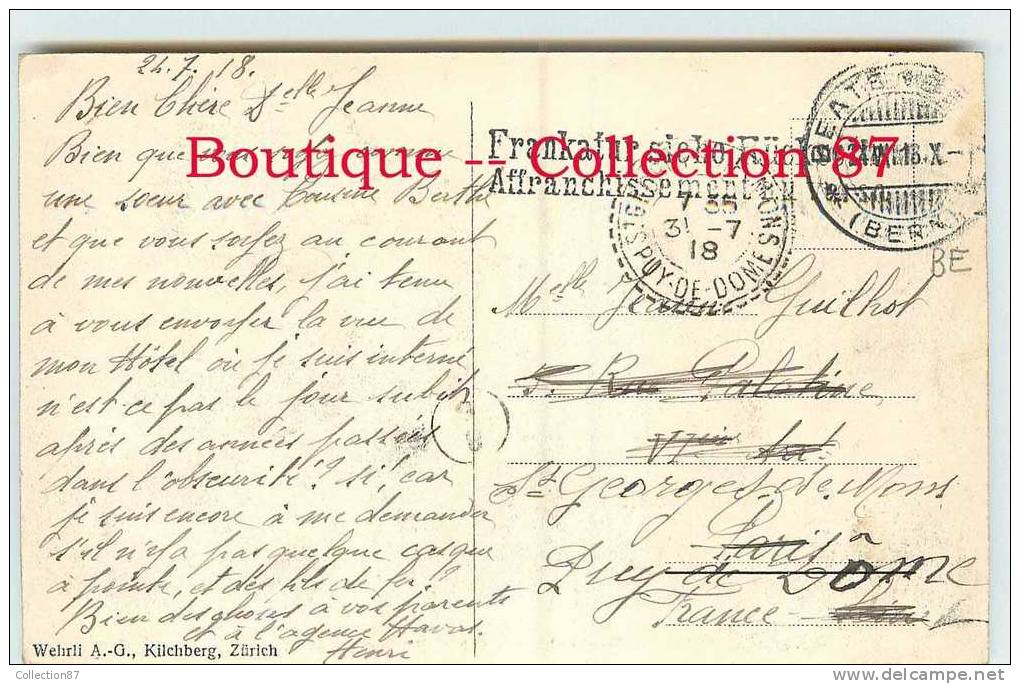 24.7.18.
Bien Chère Delle Jeanne
Bien que
une soeur avec Cousine Berthe
et que vous soyez au courant
de mes nouvelles, j'ai tenu
à vous envoyer la vue de
mon Hôtel où je suis interné
n'est-ce pas le jour subit
après des années passées
dans l'obscurité? si, car
je suis encore à me demander
s'il n'y a pas quelque casque
à pointe, et des fils de fer?
Bien des choses à vos parents
et à l'agence Havas.
Henri
Wehrli A.-G., Kilchberg, Zürich
Boutique -- Collection 87
Affranchissement
BEATE
(BERN)
31 -7
18
PUY-DE-DOME
BE
Melle Jeanne Guilhot
Rue Palatine
St. Georges de Mons
Paris
Puy de Dôme
France
©Collection87
www.delcampe.net